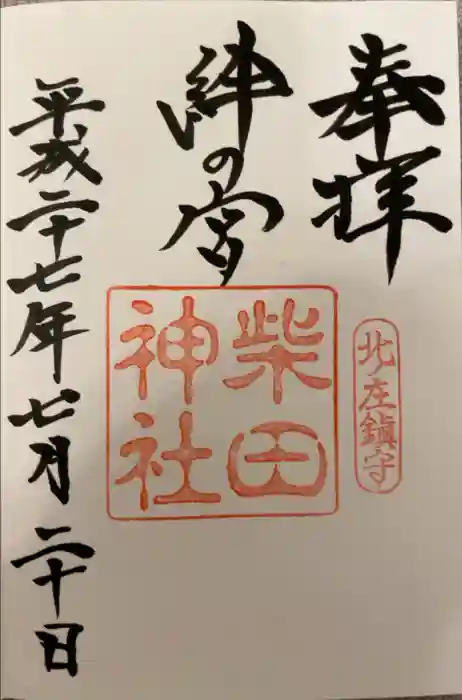 奉拝
北庄鎮守
絆の宮
柴田
神社
平成二十七年七月二十日